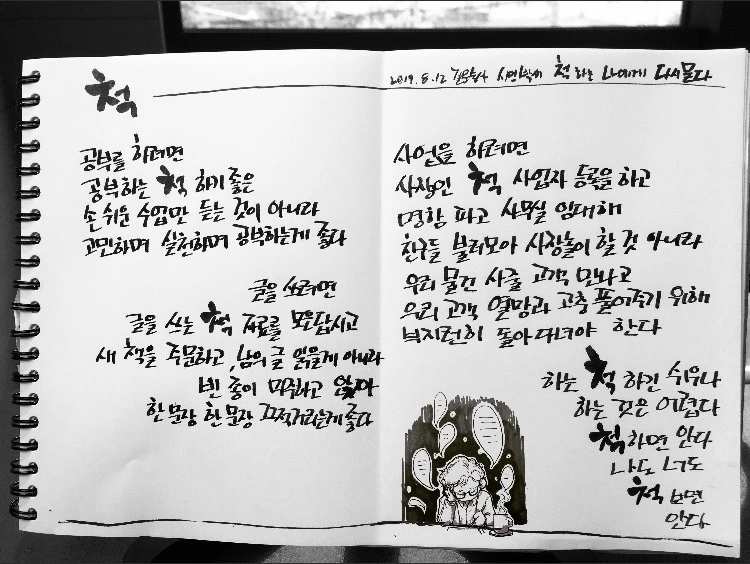 척
공부를 하려면
공부하는 척 하기 좋은
손 쉬운 수업만 듣는 것이 아니라
고민하며 실천하며 공부하는게 좋다
글을 쓰려면
글을 쓰는 척 자료를 모은답시고
새 책을 주문하고, 남의 글 읽을게 아니라
빈 종이 마주하고 앉아
한 문장 한 문장 끄적거리는게 좋다
2019. 8. 12 척 하는 나에게 다시 묻다
사업을 하려면
사장인 척 사업자 등록을 하고
명함 파고 사무실 임대해
친구들 불러모아 사장놀이 할 것 아니라
우리 물건 사줄 고객 만나고
우리 고객 열망과 고충 풀어주기 위해
부지런히 돌아다녀야 한다
하는 척 하긴 쉬우나
하는 것은 어렵다
척 하면 안다
나도 너도
척 보면
안다